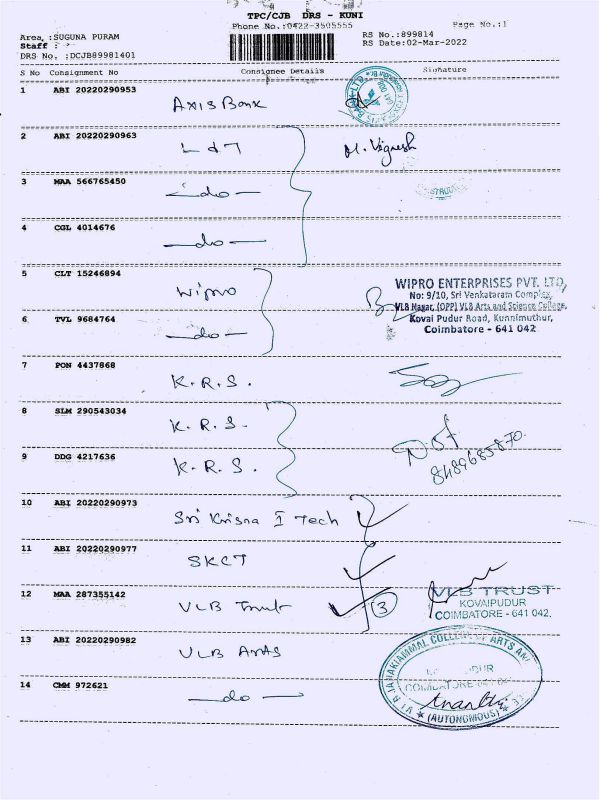 TPC/CJB DRS - KUNI
Phone No.:0422-3505555
Page No.:1
Area :SUGUNA PURAM
RS No.:899814
Staff :
RS Date:02-Mar-2022
DRS No. :DCJB89981401
S No Consignment No Consignee Details Signature
1 ABI 20220290953
Axis Bank
2 ABI 20220290963
L & T
M. Vignesh
3 MAA 566765450
-do-
4 CGL 4014676
-do-
5 CLT 15246894
Wipro
WIPRO ENTERPRISES PVT. LTD,
No: 9/10, Sri Venkataram Complex,
VLB Nagar, (OPP) VLB Arts and Science College,
Kovai Pudur Road, Kunnimuthur,
Coimbatore - 641 042
6 TVL 9684764
-do-
7 PON 4437868
K.R.S.
8 SLM 290543034
K.R.S.
9 DDG 4217636
K.R.S.
8489685870
10 ABI 20220290973
Sri Krisna I Tech
11 ABI 20220290977
SKCT
12 MAA 287355142
VLB Trust
3
VLB TRUST
KOVAIPUDUR
COIMBATORE - 641 042.
13 ABI 20220290982
VLB Arts
14 CMM 972621
-do-
COLLEGE OF ARTS AND
COIMBATORE
Ananthi
(AUTONOMOUS)